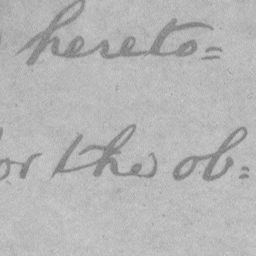 hereto=
or the ob=